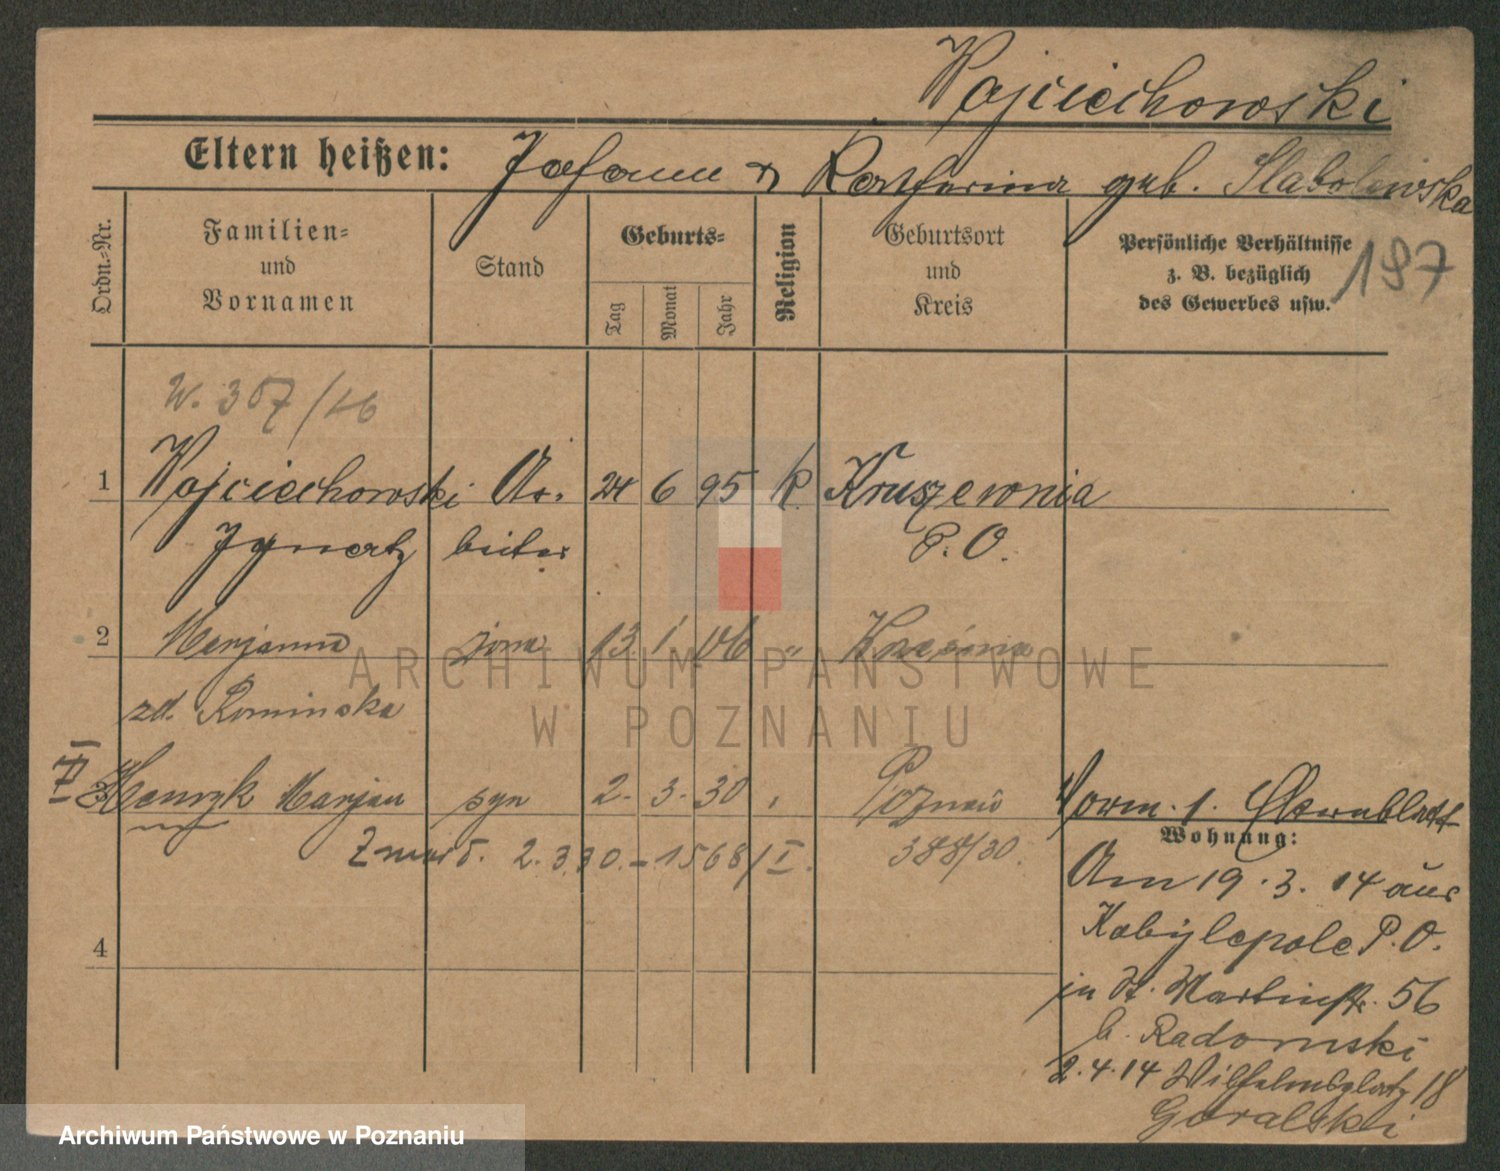 Wojciechowski
Eltern heißen: Johann & Katharina geb. Slabolewska
Ordn.-Nr.
Familien-
und
Vornamen
Stand
Geburts-
Tag
Monat
Jahr
Religion
Geburtsort
und
Kreis
Persönliche Verhältnisse
z. B. bezüglich
des Gewerbes usw.
187
W. 307/
1 Wojciechowski Ar- 24 6 95 k. Kruszewnia
Ignatz beiter P. O.
2 Marjanna żona 13. 1. 06 "
zd. Rominska
3 Henryk Marjan syn 2. 3. 30 " Poznań
Zmarł. 2.3.30. - 1568/I. 388/30.
4
Vorm. s. Elternblatt
Wohnung:
Am 19.3.14 aus
Kobylepole P. O.
in St. Martinstr. 56
b. Radomski
2.4.14 Wilhelmsplatz 18
Goralski
ARCHIWUM PAŃSTWOWE
W POZNANIU
Archiwum Państwowe w Poznaniu